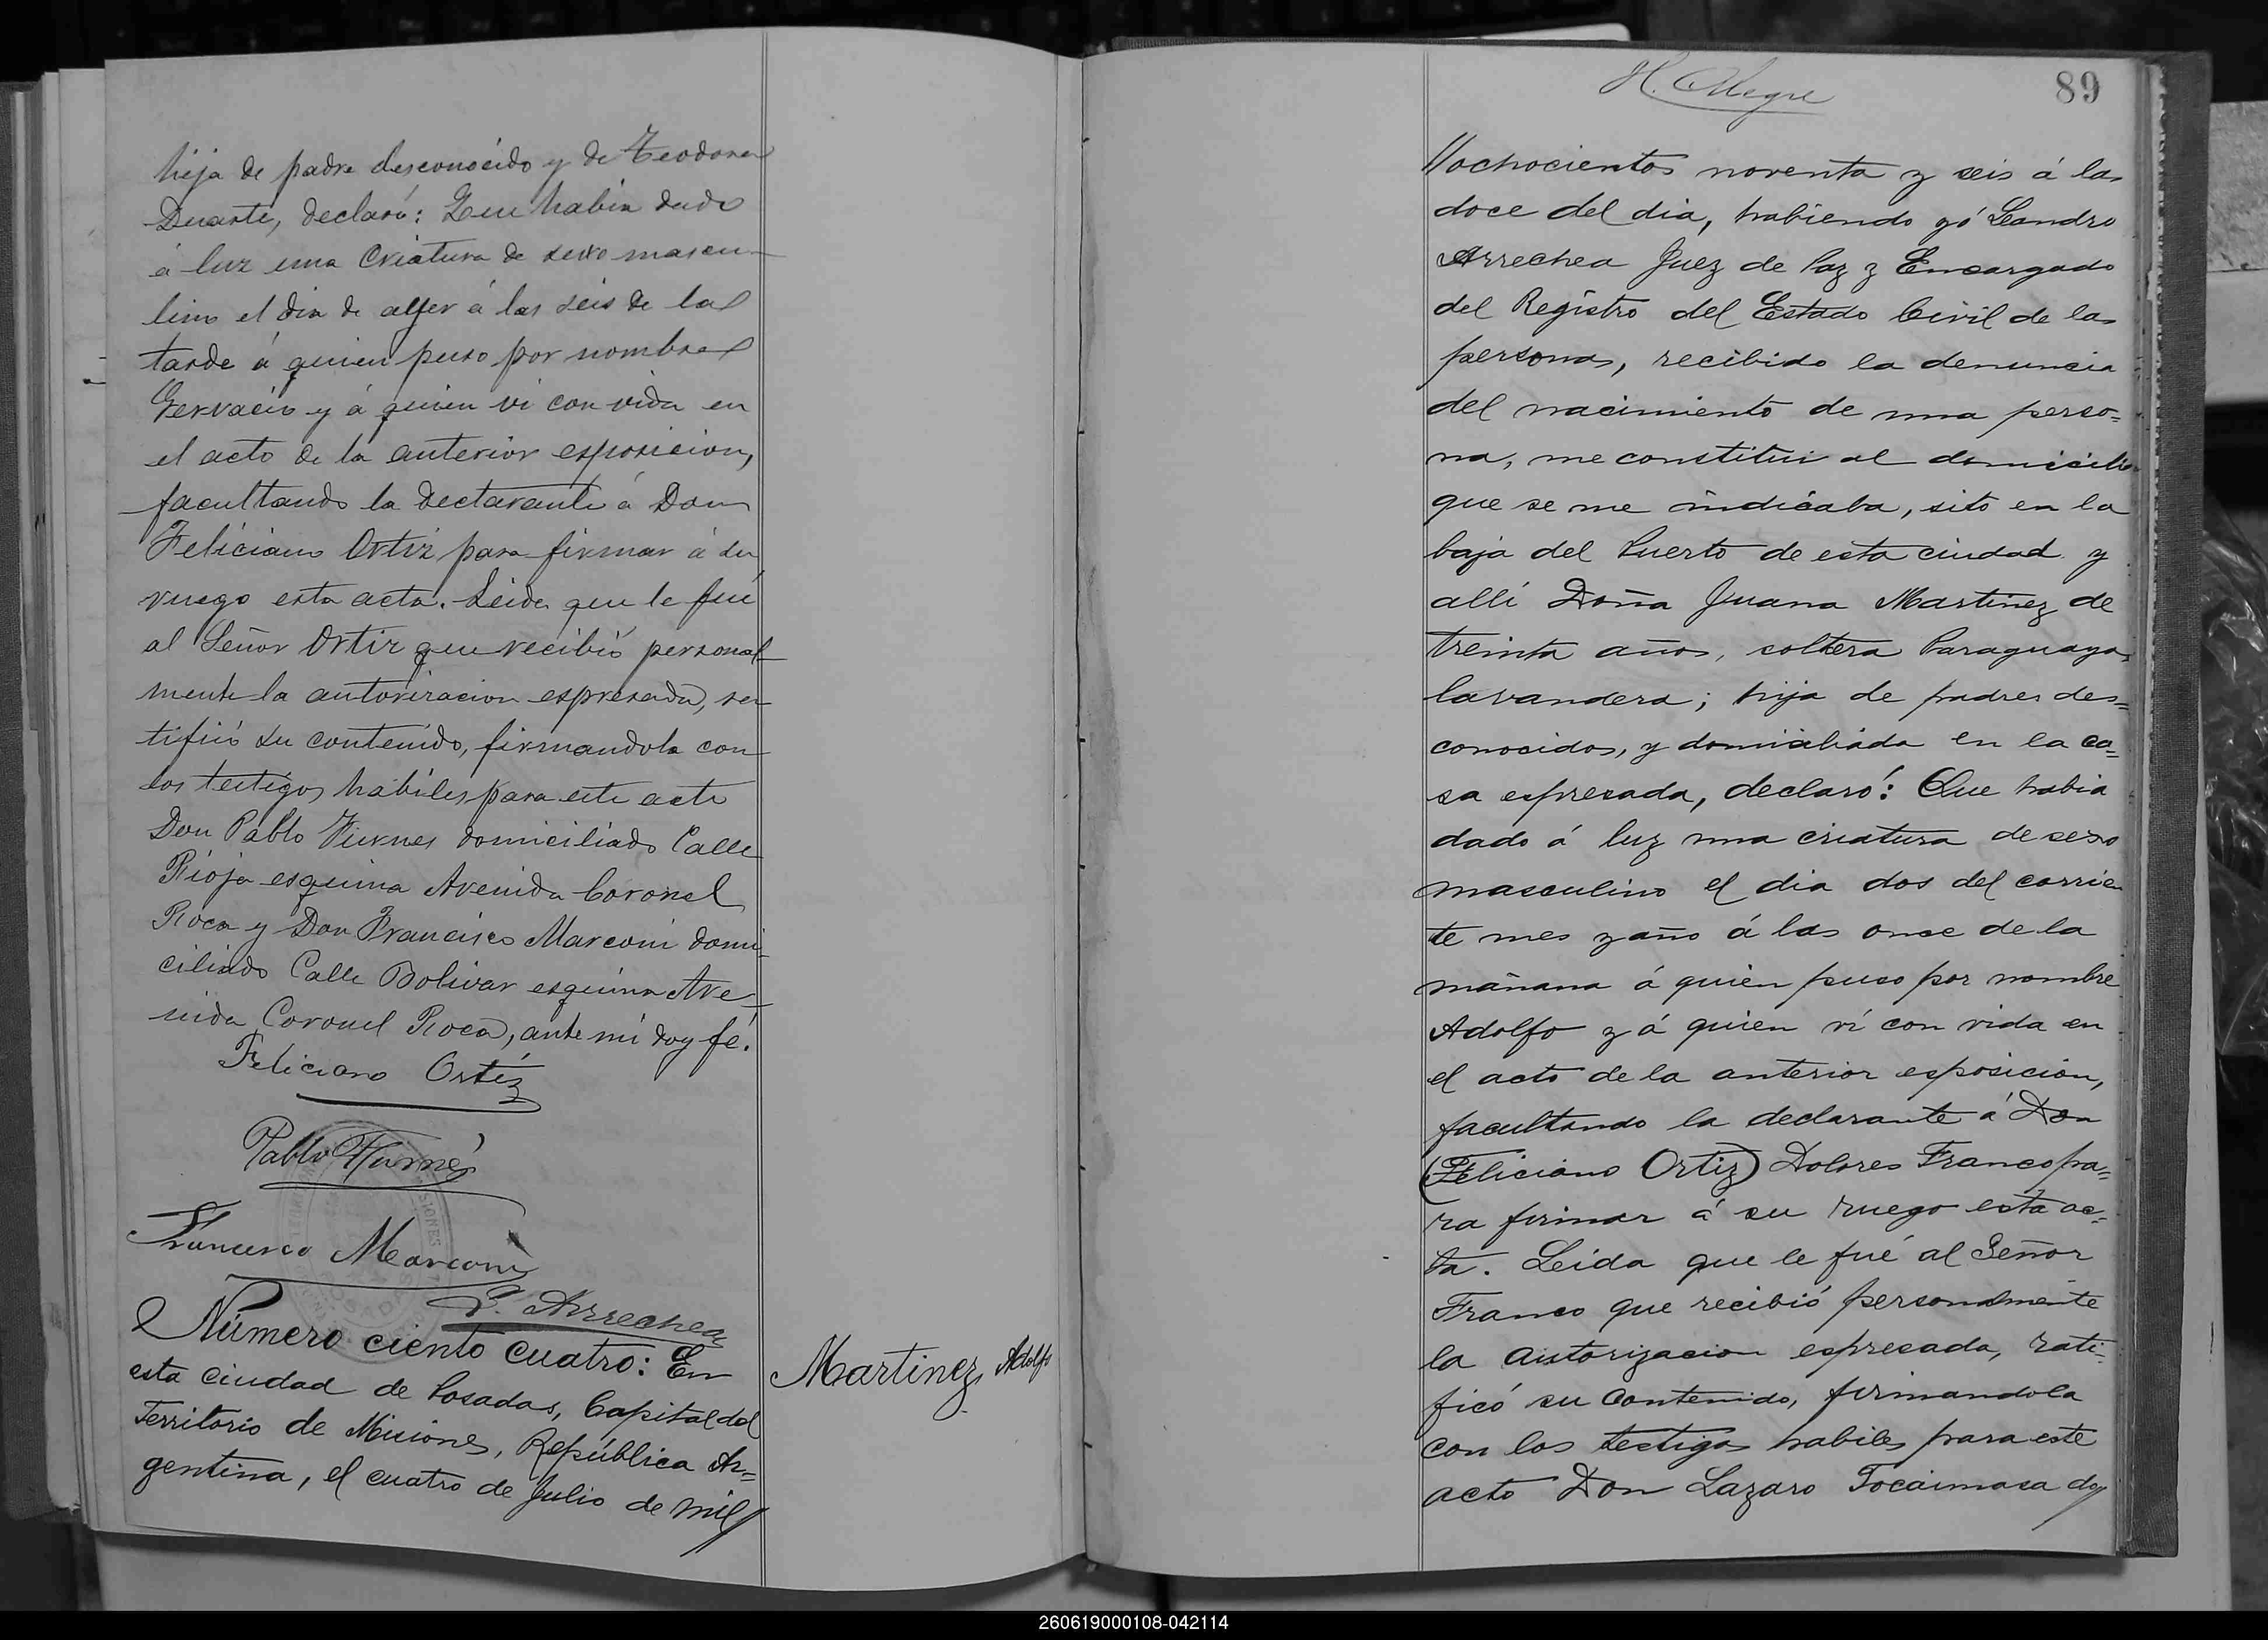 hija de padre desconocido y de Teodora
Duarte, declaró: Que habia dado
á luz una criatura de sexo mascu-
lino el dia de ayer á las seis de la
tarde á quien puso por nombre
Gervacio y á quien vi con vida en
el acto de la anterior esposicion,
facultando la declarante á Don
Feliciano Ortiz para firmar á su
ruego esta acta. Leida que le fué
al Señor Ortiz que recibió personal-
mente la autorizacion espresada, ra-
tificó su contenido, firmandola con
los testigos habiles para este acto
Don Pablo Furnes domiciliado Calle
Rioja esquina Avenida Coronel
Roca y Don Francisco Marconi domi-
ciliado Calle Bolivar esquina Ave-
nida Coronel Roca, ante mi doy fé.
Feliciano Ortíz
Pablo Furnés
Francisco Marconi
L. Arrechea
Número ciento cuatro: En
esta ciudad de Posadas, Capital del
Territorio de Misiones, República Ar=
gentina, el cuatro de Julio de mil//
Martinez, Adolfo
H. Alegre
89
//ochocientos noventa y seis á las
doce del dia, habiendo yó Leandro
Arrechea Juez de Paz y Encargado
del Registro del Estado Civil de las
personas, recibido la denuncia
del nacimiento de una perso=
na, me constitui al domicilio
que se me indicaba, sito en la
baja del Puerto de esta ciudad y
allí Doña Juana Martinez de
treinta años, soltera Paraguaya,
lavandera; hija de padres des=
conocidos, y domiciliada en la ca=
sa espresada, declaró: Que habia
dado á luz una criatura de sexo
masculino el dia dos del corrien
te mes y año á las once de la
mañana á quien puso por nombre
Adolfo y á quien ví con vida en
el acto de la anterior esposicion,
facultando la declarante á Don
(Feliciano Ortiz) Dolores Franco pa=
ra firmar á su ruego esta ac=
ta. Leida que le fué al Señor
Franco que recibió personalmente
la autorizacion espresada, rati=
ficó su contenido, firmandola
con los testigos habiles para este
acto Don Lazaro Tocaimasa do//
260619000108-042114